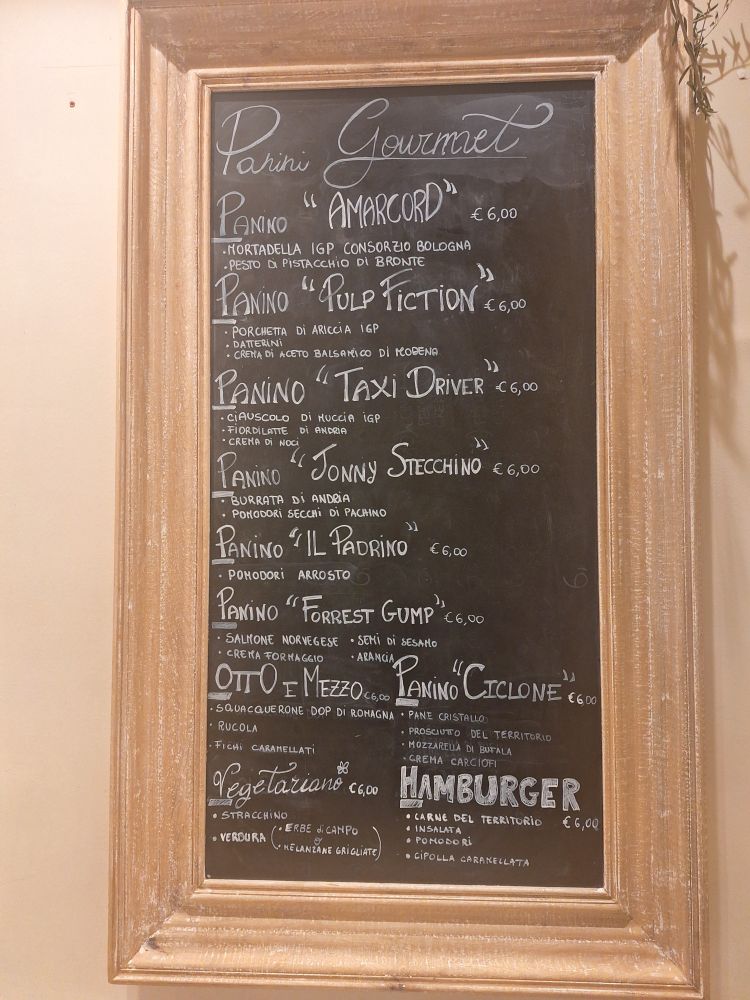 Panini Gourmet
PANINO "AMARCORD" € 6,00
• MORTADELLA IGP CONSORZIO BOLOGNA
• PESTO DI PISTACCHIO DI BRONTE
PANINO "PULP FICTION" € 6,00
• PORCHETTA DI ARICCIA IGP
• DATTERINI
• CREMA DI ACETO BALSAMICO DI MODENA
PANINO "TAXI DRIVER" € 6,00
• CIAUSCOLO DI MUCCIA IGP
• FIORDILATTE DI ANDRIA
• CREMA DI NOCI
PANINO "JONNY STECCHINO" € 6,00
• BURRATA DI ANDRIA
• POMODORI SECCHI DI PACHINO
PANINO "IL PADRINO" € 6,00
• POMODORI ARROSTO
PANINO "FORREST GUMP" € 6,00
• SALMONE NORVEGESE • SEMI DI SESAMO
• CREMA FORMAGGIO • ARANCIA
OTTO E MEZZO € 6,00
• SQUACQUERONE DOP DI ROMAGNA
• RUCOLA
• FICHI CARAMELLATI
PANINO "CICLONE" € 6,00
• PANE CRISTALLO
• PROSCIUTTO DEL TERRITORIO
• MOZZARELLA DI BUFALA
• CREMA CARCIOFI
Vegetariano € 6,00
• STRACCHINO
• VERDURA (• ERBE di CAMPO
o
• MELANZANE GRIGLIATE)
HAMBURGER
• CARNE DEL TERRITORIO € 6,00
• INSALATA
• POMODORI
• CIPOLLA CARAMELLATA